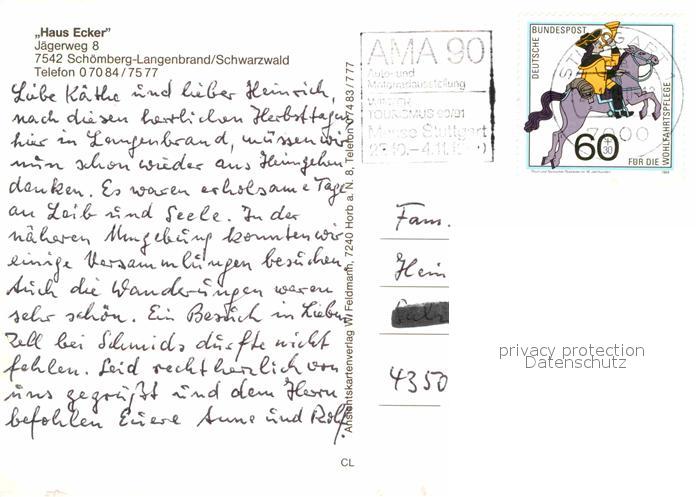 „Haus Ecker"
Jägerweg 8
7542 Schömberg-Langenbrand/Schwarzwald
Telefon 0 70 84 / 75 77
Liebe Käthe und lieber Heinrich,
nach diesen herrlichen Herbsttagen
hier in Langenbrand, müssen wir
nun schon wieder ans Heimgehen
denken. Es waren erholsame Tage
an Leib und Seele. In der
näheren Umgebung konnten wir
einige Versammlungen besuchen.
Auch die Wanderungen waren
sehr schön. Ein Besuch in Lieben
Zell bei Schmids durfte nicht
fehlen. Seid recht herzlich von
uns gegrüßt und dem Herrn
befohlen Euere Anne und Rolf.
Ansichtskartenverlag W. Feldmann, 7240 Horb a. N. 8, Telefon 0 74 83 / 7 77
CL
AMA 90
Auto- und
Motorradausstellung
WINTER
TOURISMUS 90/91
Messe Stuttgart
27.10.- 4.11.
STUTTGART 1
7000
DEUTSCHE BUNDESPOST
60
+
30
FÜR DIE WOHLFAHRTSPFLEGE
1989
Fam.
Hein
4350
privacy protection
Datenschutz